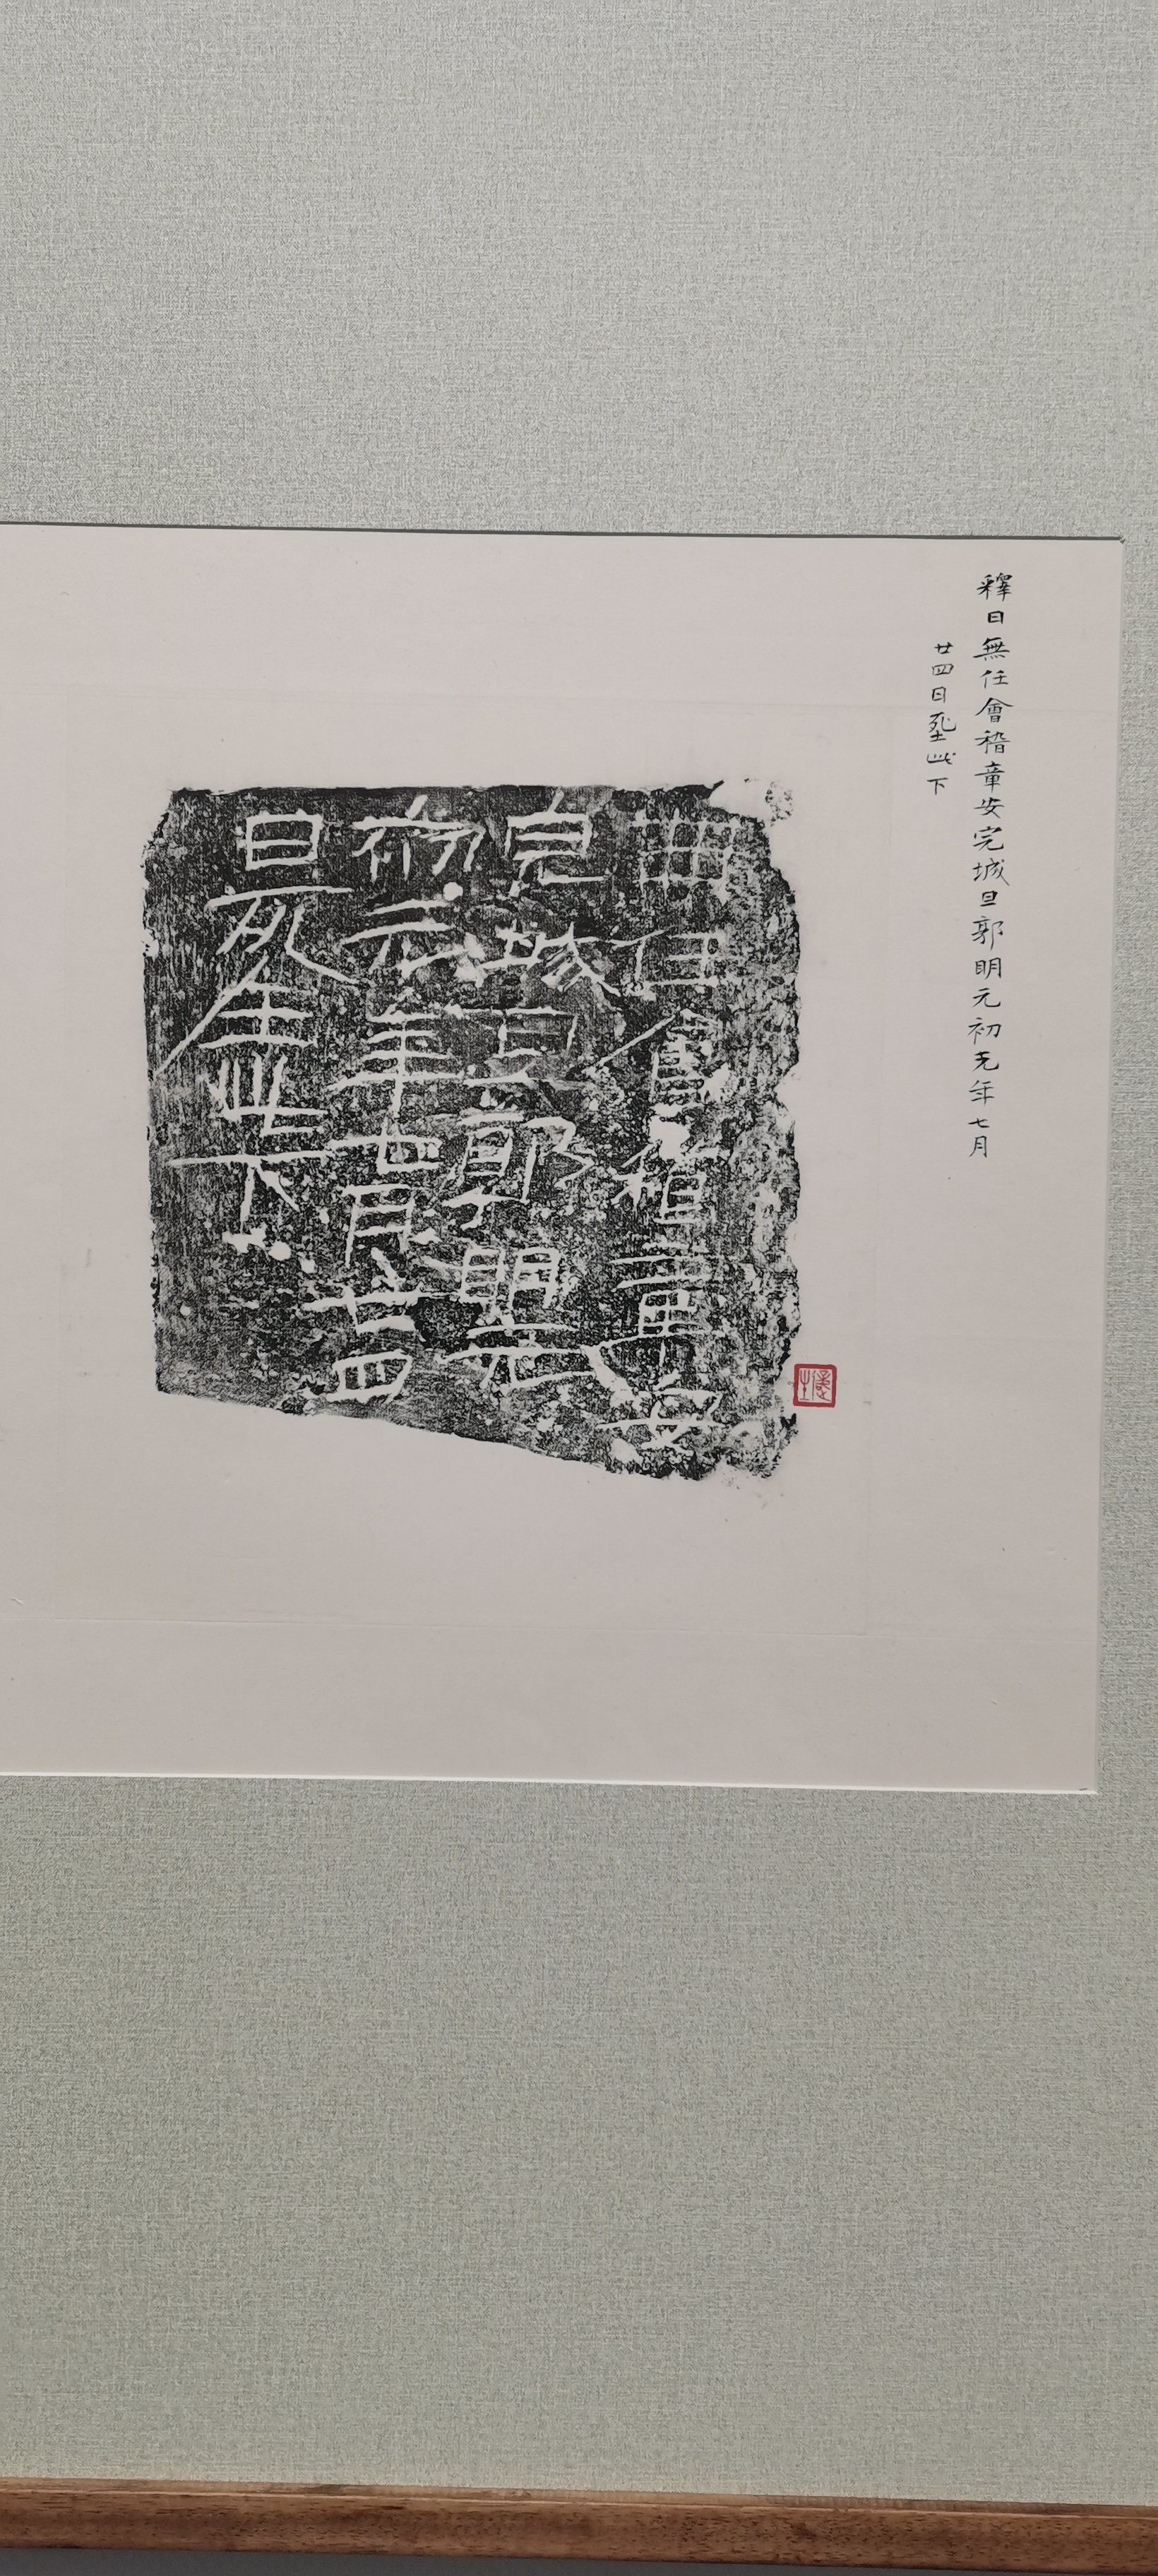 釋曰無任會稽章安完城旦郭明元初元年七月
廿四日此下
無任會稽章安
完城旦郭明元
初元年七月廿四
日死在此下